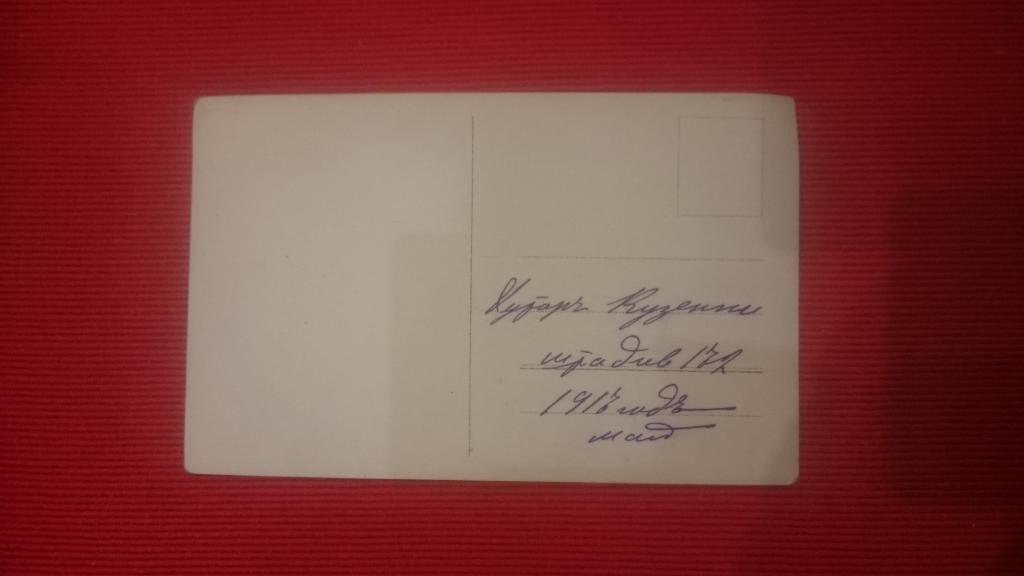 Хуторъ Кузенки
штадив 172
1917 годъ
май